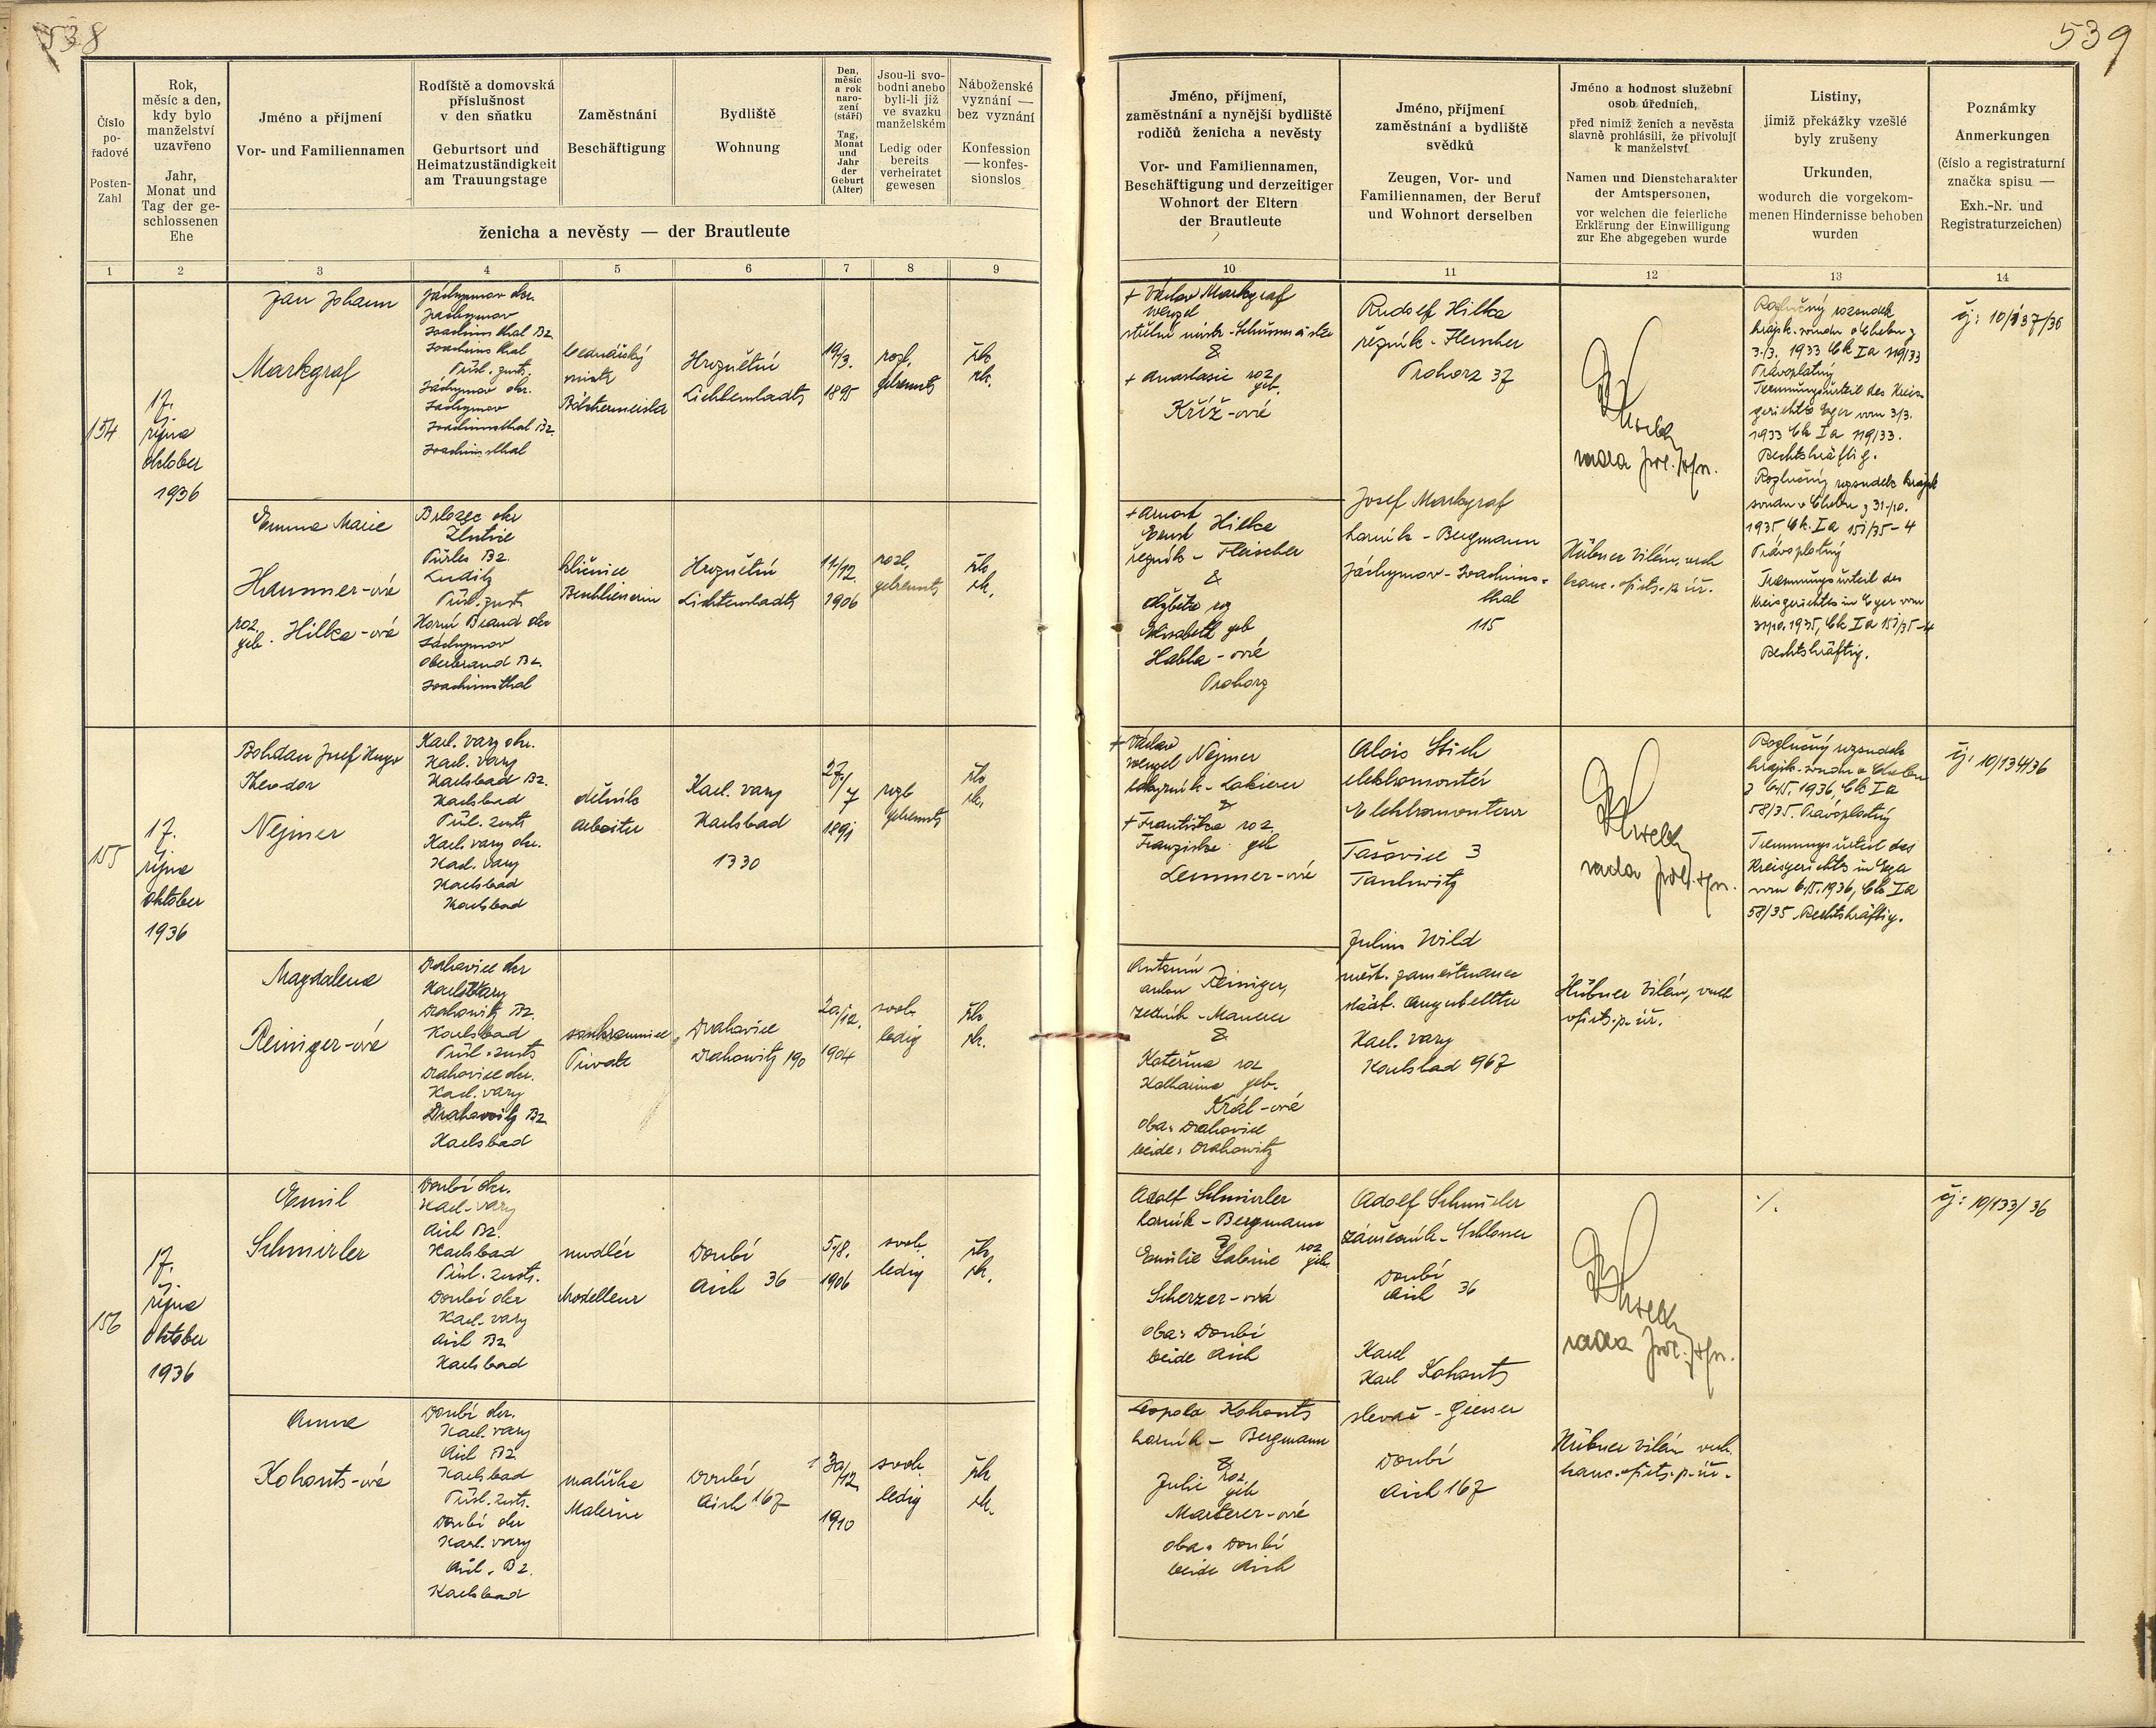 538
539
Číslo pořadové
Posten-Zahl
Rok, měsíc a den, kdy bylo manželství uzavřeno
Jahr, Monat und Tag der geschlossenen Ehe
Jméno a příjmení
Vor- und Familiennamen
Rodiště a domovská příslušnost v den sňatku
Geburtsort und Heimatzuständigkeit am Trauungstage
Zaměstnání
Beschäftigung
Bydliště
Wohnung
Den, měsíc a rok narození (stáří)
Tag, Monat und Jahr der Geburt (Alter)
Jsou-li svobodni anebo byli-li již ve svazku manželském
Ledig oder bereits verheiratet gewesen
Náboženské vyznání — bez vyznání
Konfession — konfessionslos
ženicha a nevěsty — der Brautleute
Jméno, příjmení, zaměstnání a nynější bydliště rodičů ženicha a nevěsty
Vor- und Familiennamen, Beschäftigung und derzeitiger Wohnort der Eltern der Brautleute
Jméno, příjmení zaměstnání a bydliště svědků
Zeugen, Vor- und Familiennamen, der Beruf und Wohnort derselben
Jméno a hodnost služební osob úředních,
před nimiž ženich a nevěsta slavně prohlásili, že přivolují k manželství
Namen und Dienstcharakter der Amtspersonen,
vor welchen die feierliche Erklärung der Einwilligung zur Ehe abgegeben wurde
Listiny,
jimiž překážky vzešlé byly zrušeny
Urkunden,
wodurch die vorgekommenen Hindernisse behoben wurden
Poznámky
Anmerkungen
(číslo a registraturní značka spisu —
Exh.-Nr. und Registraturzeichen)
1 2 3 4 5 6 7 8 9 10 11 12 13 14
154
17.
října
Oktober
1936
Jan Johann
Markgraf
Jáchymov okr.
Jáchymov
Joachimsthal Bz.
Joachimsthal
Přísl. zust.
Jáchymov okr.
Jáchymov
Joachimsthal Bz.
Joachimsthal
bednářský
mistr
Hroznětín
Lichtenstadt
19/3.
1895
rozl.
getrennt
řk
rk.
+ Václav Markgraf
Wenzel
&
+ Anastasie roz.
geb.
Kříž-ové
Rudolf Hilka
řezník - Fleischer
Prohorz 37
rada pol. spr.
Rozlučný rozsudek
krajsk. soudu v Chebu z
3./3. 1933 Ck Ia 119/33
Právoplatný
Trennungsurteil des Kreis-
gerichts Eger vom 3/3.
1933 Ck Ia 119/33.
Rechtskräftig.
čj: 10/137/36
Emma Marie
Hammer-ová
roz.
geb. Hilka-ová
Brložec okr
Žlutice
Pürles Bz.
Luditz
Přísl. zust.
Horní Brand okr
Jáchymov
Oberbrand Bz.
Joachimsthal
klíčnice
Beschliesserin
Hroznětín
Lichtenstadt
11/12.
1906
rozl.
getrennt
řk
rk.
+ Arnošt
Ernst Hilka
řezník - Fleischer
&
Alžběta roz
Elisabeth geb
Habla-ové
Prohorz
Josef Markgraf
horník - Bergmann
Jáchymov - Joachims-
thal
115
Hübner Vilém, vrch
kanc. ofic. p. úř.
Rozlučný rozsudek krajsk
soudu v Chebu z 31./10.
1935 Ck. Ia 151/35-4
Právoplatný
Trennungsurteil des
Kreisgerichtes in Eger vom
31/10.1935, Ck Ia 151/35-4
Rechtskräftig.
155
17.
října
Oktober
1936
Bohdan Josef Hugo
Theodor
Nejmer
Karl. Vary okr.
Karl. Vary
Karlsbad Bz.
Karlsbad
Přísl. zust
Karl. Vary okr.
Karl. Vary
Karlsbad
Karlsbad
dělník
Arbeiter
Karl. Vary
Karlsbad
1330
27/
7
1891
rozl
getrennt
řk
rk.
+ Václav
Wenzel Nejmer
lakýrník - Lakierer
&
+ Františka roz.
Franziska geb
Lemmer-ové
Alois Stich
elektromontér
Elektromonteur
Tašovice 3
Taschwitz
rada pol. spr.
Rozlučný rozsudek
krajsk. soudu v Chebu
z 6/5. 1936, Ck Ia
58/35. Právoplatný
Trennungsurteil des
Kreisgerichts in Eger
vom 6/5.1936, Ck Ia
58/35 Rechtskräftig.
čj: 10/134/36
Magdalena
Reiniger-ová
Drahovice okr
Karl. Vary
Drahowitz Bz.
Karlsbad
Přísl. zust
Drahovice okr.
Karl. Vary
Drahowitz Bz
Karlsbad
soukromnice
Private
Drahovice
Drahowitz 190
20/12.
1904
svob.
ledig
řk
rk.
Antonín
Anton Reiniger,
zedník - Maurer
&
Kateřina roz
Katharina geb.
Král-ové
oba: Drahovice
beide: Drahowitz
Julius Wild
měst. zaměstnanec
städt. Angestellter
Karl. Vary
Karlsbad 967
Hübner Vilém, vrch
ofic. p. úř.
156
17.
října
Oktober
1936
Emil
Schmirler
Doubí okr.
Karl. Vary
Aich Bz.
Karlsbad
Přísl. zust.
Doubí okr
Karl. Vary
Aich Bz
Karlsbad
modlér
Modelleur
Doubí
Aich 36
5/8.
1906
svob.
ledig
řk
rk.
Adolf Schmirler
horník - Bergmann
&
Emilie Sabine roz
geb.
Scherzer-ová
oba: Doubí
beide Aich
Adolf Schmirler
zámečník - Schlosser
Doubí
Aich 36
rada pol. spr.
./.
čj: 10/133/36
Anna
Kohouts-ová
Doubí okr.
Karl. Vary
Aich Bz.
Karlsbad
Přísl. zust.
Doubí okr
Karl. Vary
Aich. Bz.
Karlsbad
malířka
Malerin
Doubí
Aich 167
30/12
1910
svob.
ledig
řk
rk.
Leopold Kohouts
horník - Bergmann
&
Julie roz.
geb
Marterer-ové
oba: Doubí
beide Aich
Karel
Karl Kohouts
slevač - Giesser
Doubí
Aich 167
Hübner Vilém vrch.
kanc. ofic. p. úř.